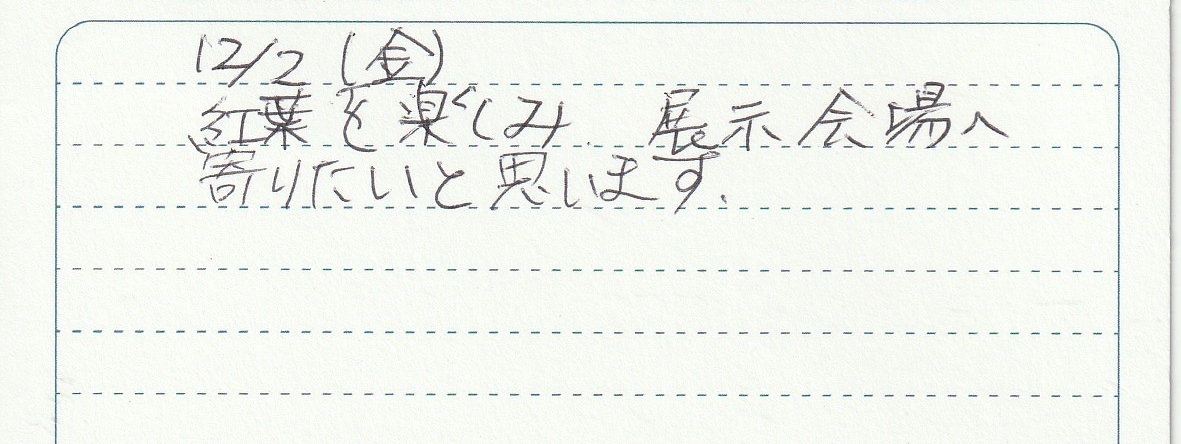 12/2 (金)
紅葉を楽しみ、展示会場へ
寄りたいと思います。